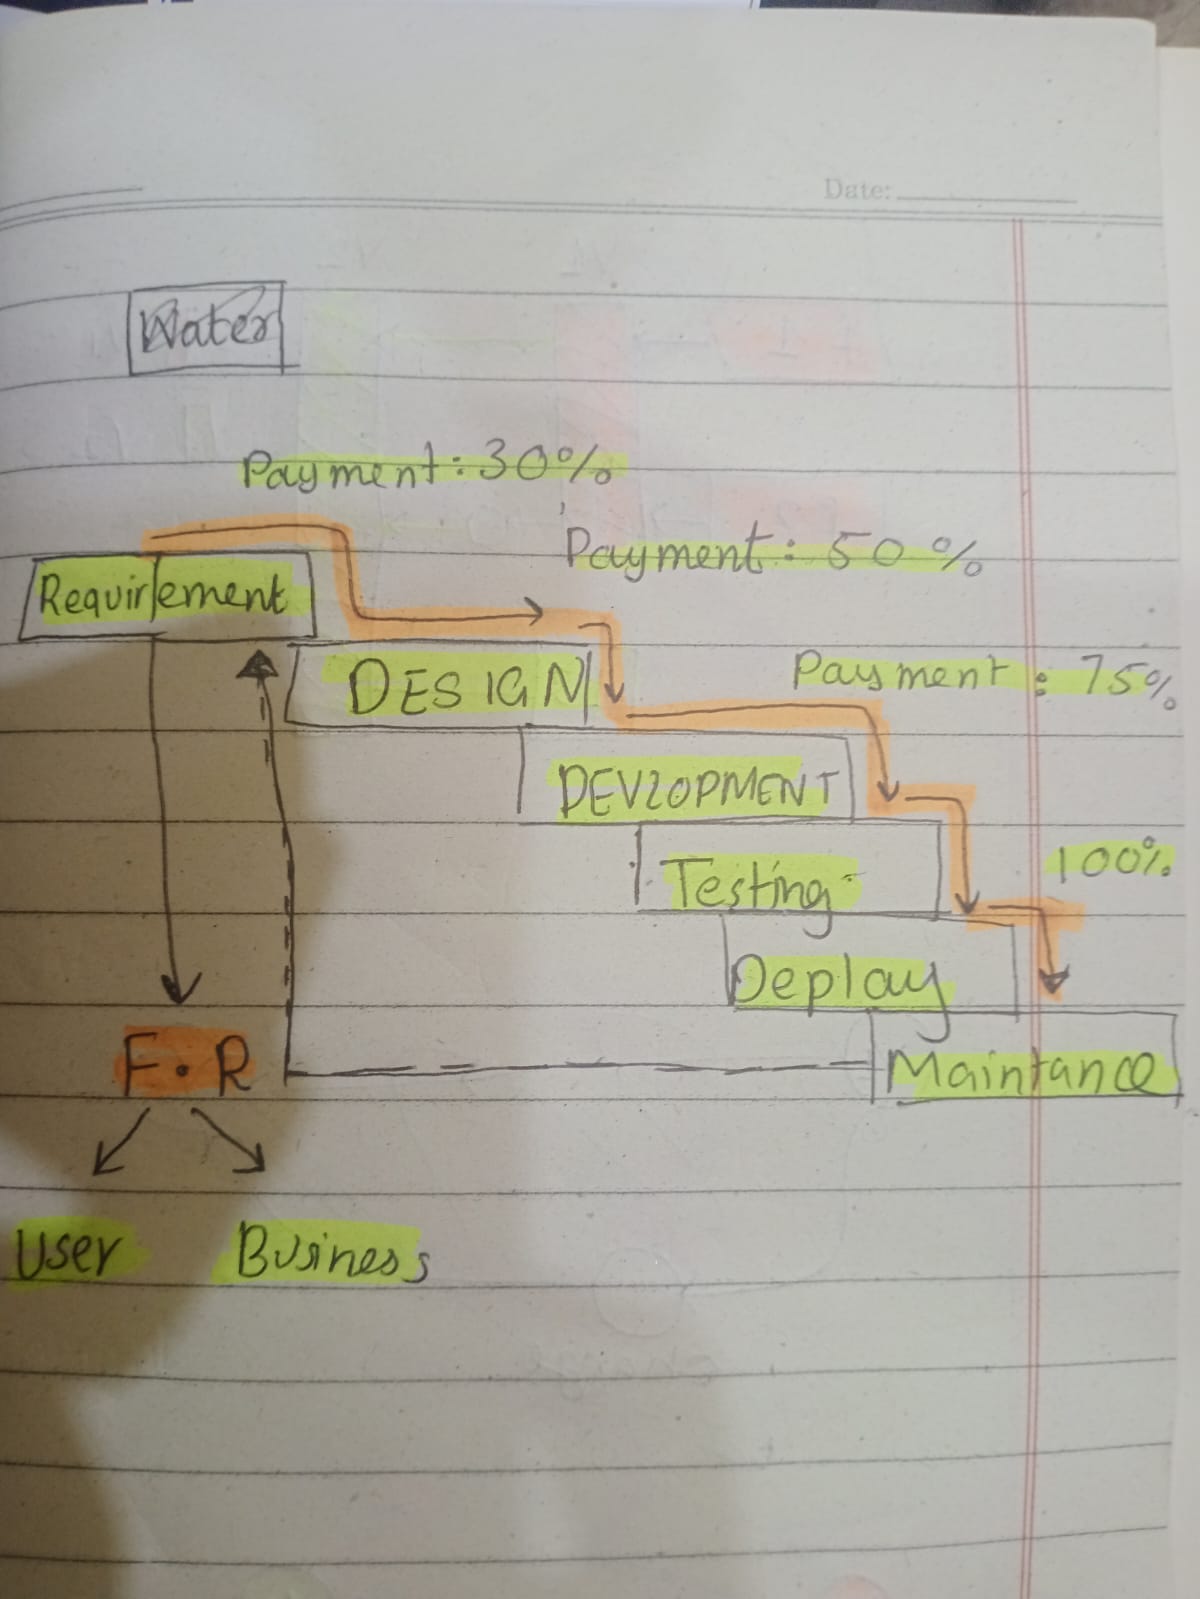 Date:
Water
Payment: 30%
Payment: 50%
Requirlement
Payment: 75%
DESIGN
DEVLOPMENT
100%
Testing
Deplay
F.R
Maintance
User Business